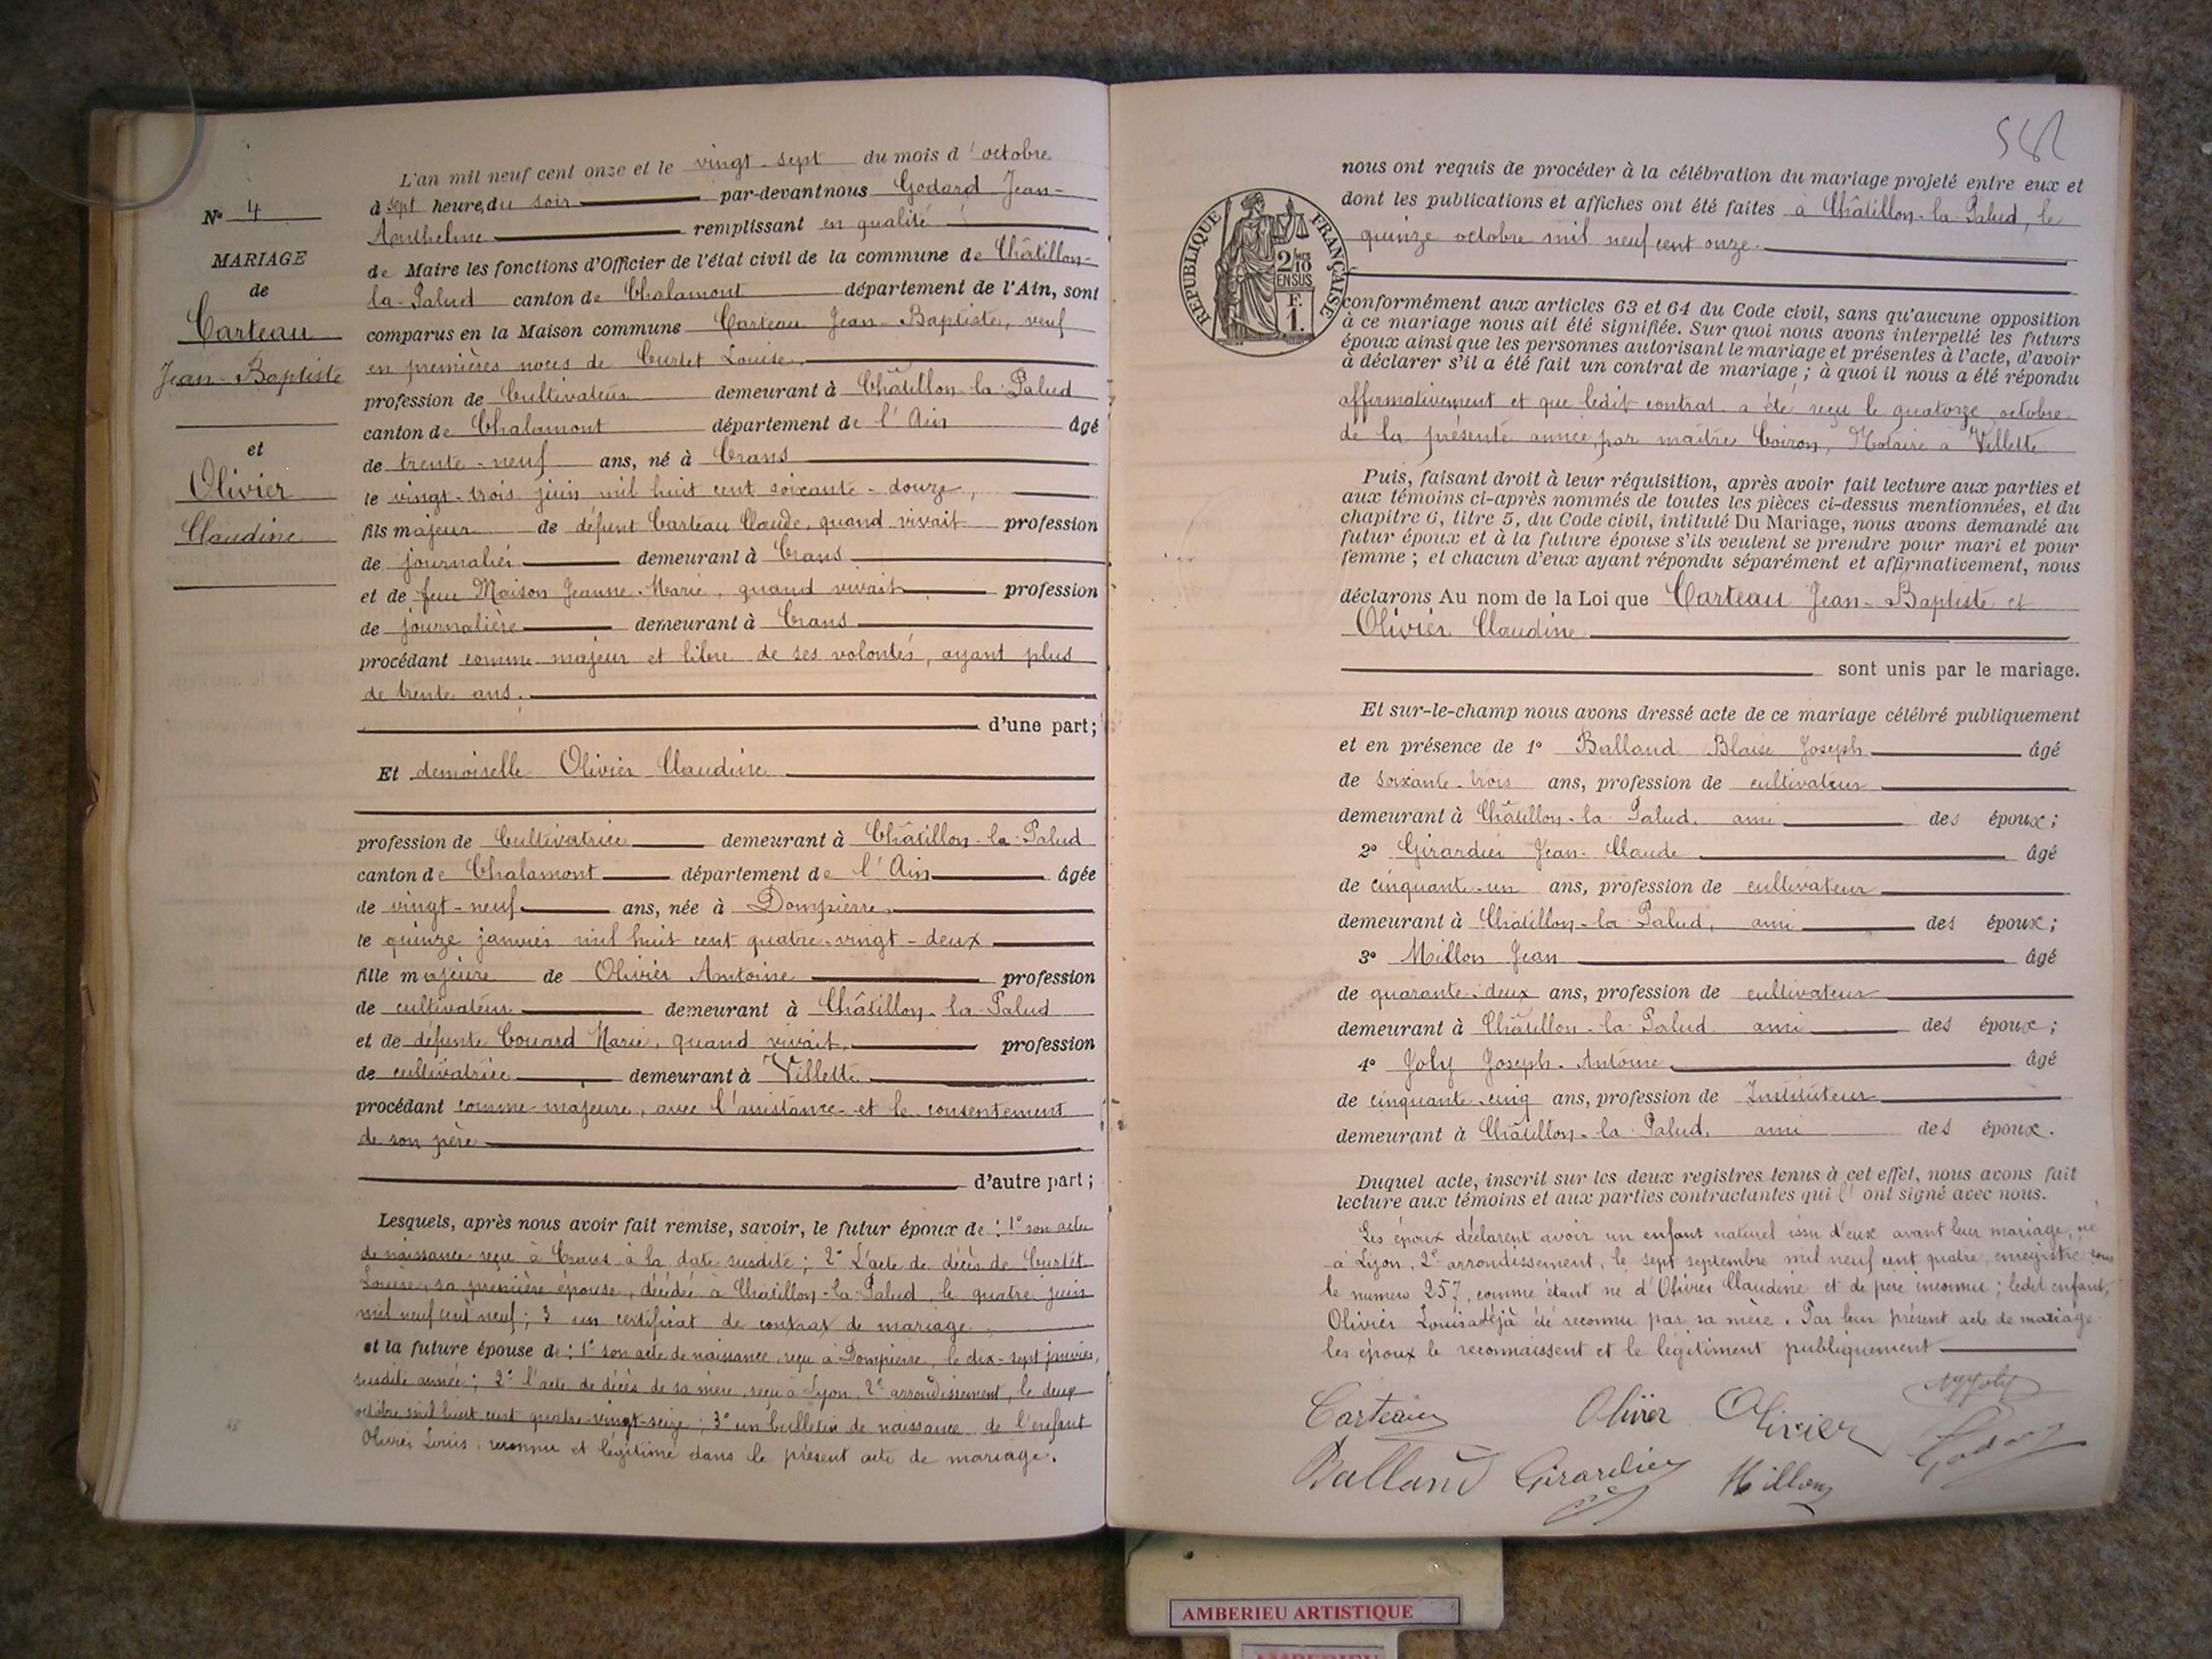 N° 4
MARIAGE
de
Carteau
Jean-Baptiste
et
Olivier
Claudine
L'an mil neuf cent onze et le vingt-sept du mois d'octobre
à sept heure, du soir par-devant nous Godard Jean-
Anthelme remplissant en qualité
de Maire les fonctions d'Officier de l'état civil de la commune de Châtillon-
la-Palud canton de Chalamont département de l'Ain, sont
comparus en la Maison commune Carteau Jean-Baptiste, veuf
en premières noces de Curtet Louise,
profession de Cultivateur demeurant à Châtillon-la-Palud
canton de Chalamont département de l'Ain âgé
de trente-neuf ans, né à Crans
le vingt-trois juin mil huit cent soixante-douze,
fils majeur de défunt Carteau Claude, quand vivait profession
de journalier demeurant à Crans
et de feue Maison Jeanne-Marie, quand vivait profession
de journalière demeurant à Crans
procédant comme majeur et libre de ses volontés, ayant plus
de trente ans.
d'une part;
Et demoiselle Olivier Claudine
profession de Cultivatrice demeurant à Châtillon-la-Palud
canton de Chalamont département de l'Ain âgée
de vingt-neuf ans, née à Dompierre
le quinze janvier mil huit cent quatre-vingt-deux
fille majeure de Olivier Antoine profession
de cultivateur demeurant à Châtillon-la-Palud
et de défunte Couard Marie, quand vivait, profession
de cultivatrice demeurant à Villette
procédant comme majeure, avec l'assistance et le consentement
de son père
d'autre part;
Lesquels, après nous avoir fait remise, savoir, le futur époux de: 1° son acte
de naissance reçu à Crans à la date susdite; 2° L'acte de décès de Curtet
Louise, sa première épouse, décédée à Châtillon-la-Palud, le quatre juin
mil neuf cent neuf; 3 un certificat de contrat de mariage
et la future épouse de: 1° son acte de naissance, reçu à Dompierre, le dix-sept janvier,
susdite année; 2° l'acte de décès de sa mère, reçu à Lyon, 2e arrondissement, le deux
octobre mil huit cent quatre-vingt-seize; 3° un bulletin de naissance de l'enfant
Olivier Louis reconnu et légitimé dans le présent acte de mariage.
RÉPUBLIQUE FRANÇAISE
2/10 EN SUS
F.
1.
nous ont requis de procéder à la célébration du mariage projeté entre eux et
dont les publications et affiches ont été faites à Châtillon-la-Palud, le
quinze octobre mil neuf cent onze.
conformément aux articles 63 et 64 du Code civil, sans qu'aucune opposition
à ce mariage nous ait été signifiée. Sur quoi nous avons interpellé les futurs
époux ainsi que les personnes autorisant le mariage et présentes à l'acte, d'avoir
à déclarer s'il a été fait un contrat de mariage; à quoi il nous a été répondu
affirmativement et que ledit contrat a été reçu le quatorze octobre
de la présente année, par maître Coiron, Notaire à Villette
Puis, faisant droit à leur réquisition, après avoir fait lecture aux parties et
aux témoins ci-après nommés de toutes les pièces ci-dessus mentionnées, et du
chapitre 6, titre 5, du Code civil, intitulé Du Mariage, nous avons demandé au
futur époux et à la future épouse s'ils veulent se prendre pour mari et pour
femme; et chacun d'eux ayant répondu séparément et affirmativement, nous
déclarons Au nom de la Loi que Carteau Jean-Baptiste et
Olivier Claudine
sont unis par le mariage.
Et sur-le-champ nous avons dressé acte de ce mariage célébré publiquement
et en présence de 1° Balland Blaise Joseph âgé
de soixante-trois ans, profession de cultivateur
demeurant à Châtillon-la-Palud, ami des époux;
2° Girardier Jean-Claude âgé
de cinquante-un ans, profession de cultivateur
demeurant à Châtillon-la-Palud, ami des époux;
3° Millon Jean âgé
de quarante-deux ans, profession de cultivateur
demeurant à Châtillon-la-Palud ami des époux;
4° Joly Joseph-Antoine âgé
de cinquante-cinq ans, profession de Instituteur
demeurant à Châtillon-la-Palud, ami des époux.
Duquel acte, inscrit sur les deux registres tenus à cet effet, nous avons fait
lecture aux témoins et aux parties contractantes qui l'ont signé avec nous.
Les époux déclarent avoir un enfant naturel issu d'eux avant leur mariage, né
à Lyon, 2e arrondissement, le sept septembre mil neuf cent quatre, enregistré sous
le numéro 257, comme étant né d'Olivier Claudine et de père inconnu; ledit enfant,
Olivier Louis a déjà été reconnu par sa mère. Par leur présent acte de mariage
les époux le reconnaissent et le légitiment publiquement
Carteau Olivier Olivier Joly
Balland Girardier Millon Godard
AMBERIEU ARTISTIQUE
AMBERIEU